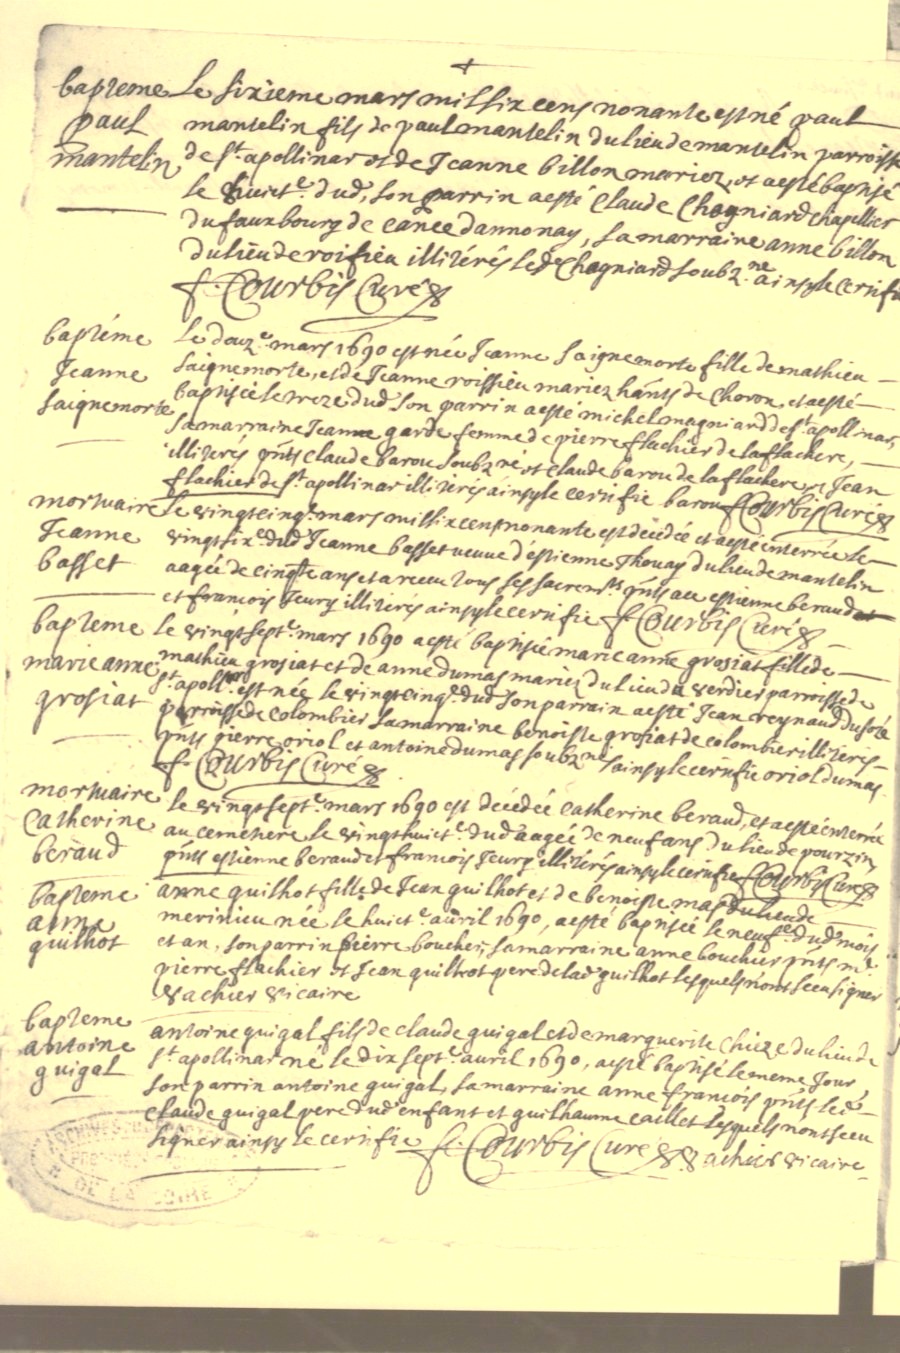 bapteme
paul
mantelin
Le sixieme mars mil six cens nonante est né paul
mantelin fils de paul mantelin du lieu de mantelin parroisse
de St. apollinar et de Jeanne billon mariez, et a esté baptisé
le huict.e dud., son parrin a esté Claude Chogniard chapellier
du fauxbourg de cance dannonay, sa marraine anne billon
du lieu de roifieu illiterés led. Chogniard soubz.né ainsy le certifie
f. Courbis Curé
baptéme
Jeanne
saignemorte
Le douz.e mars 1690 est née Jeanne saignemorte fille de mathieu
saignemorte, et de Jeanne roissieu mariez hants de Choron, et a esté
baptisée le treze dud. son parrin a esté michel magniard de St. apollinar,
sa marraine Jeanne garde femme de pierre flachier de la flachere,
illiterés pnts Claude barou soubz.né et Claude barou de la flachere, et Jean
flachier de St. apollinar illiterés ainsy le certifie barou f. Courbis Curé
mortuaire
Jeanne
basset
Le vingt cinq.e mars mil six cens nonante est décédée et a esté enterrée le
vingt six.e dud. Jeanne basset veuve d'estienne Thouay du lieu de mantelin
aagée de cinq.te ans et a receu tous ses sacrem.ts pnts au estienne beraud
et francois Jeury illiterés ainsy le certifie f. Courbis Curé
bapteme
marie anne
grosiat
Le vingt sept.e mars 1690 a esté baptisée marie anne grosiat fille de
mathieu grosiat et de anne dumas mariez du lieu du verdier parroisse de
St. apoll.ar est née le vingt cinq.e dud. son parrain a esté Jean reynaud du
parroisse de Colombier sa marraine benoiste grosiat de colombier illiterés
pnts pierre oriol et antoine dumas soubz.nés ainsy le certifie oriol dumas
f. Courbis Curé
mortuaire
Catherine
beraud
Le vingt sept.e mars 1690 est décédée Catherine beraud, et a esté enterrée
au cemetiere le vingt huict.e dud. aagée de neuf ans du lieu de pourzin,
pnts estienne beraud et francois Jeury illiterés ainsy le certifie f. Courbis Curé
bapteme
anne
guilhot
anne guilhot fille de Jean guilhot et de benoiste mas du lieu de
merinieu née le huict.e auril 1690, a esté baptisée le neuf.e dud. mois
et an, son parrin pierre boucher, sa marraine anne bouchier pnts m.
pierre flachier et Jean guilhot pere de lad. guilhot lesquels n'ont sceu signer
vachier vicaire
bapteme
antoine
guigal
antoine guigal fils de claude guigal et de marguerite Chieze du lieu de
St. apollinar né le dix sept.e auril 1690, a esté baptisé le meme Jour
son parrin antoine guigal, sa marraine anne francois pnts led.
Claude guigal pere dud. enfant et guilhaume caillet lesquels n'ont sceu
signer ainsy le certifie f. Courbis Curé vachier vicaire
DE LA LOIRE